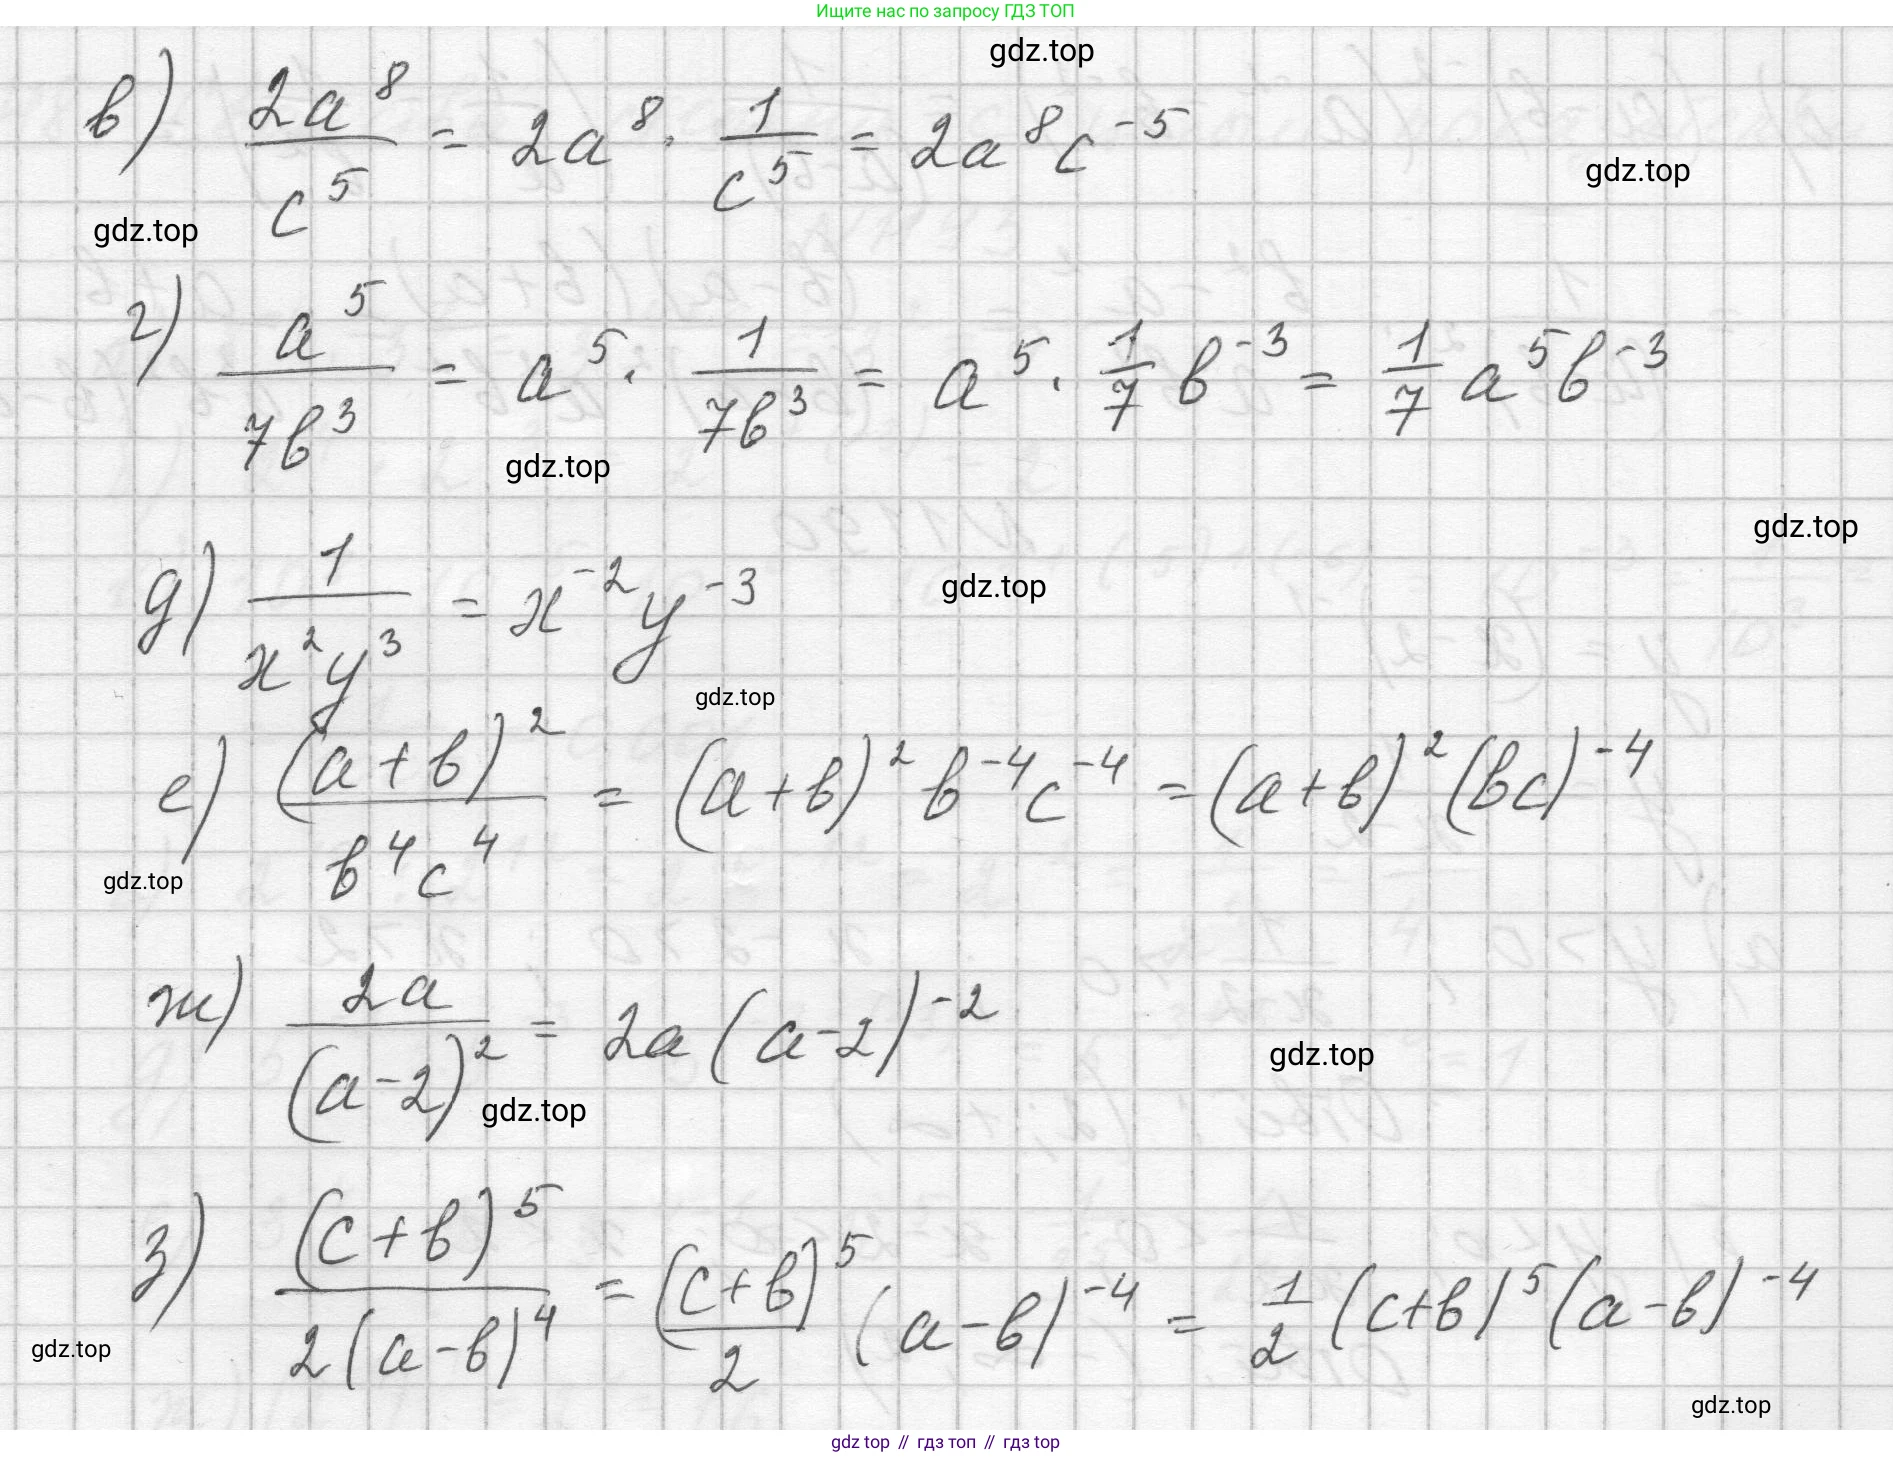 Ищите нас по запросу ГДЗ ТОП
gdz.top
в) 2a⁸/c⁵ = 2a⁸ · 1/c⁵ = 2a⁸c⁻⁵
gdz.top
gdz.top
г) a⁵/7b³ = a⁵ · 1/7b³ = a⁵ · 1/7 b⁻³ = 1/7 a⁵b⁻³
gdz.top
gdz.top
д) 1/x²y³ = x⁻²y⁻³
gdz.top
gdz.top
е) (a+b)²/b⁴c⁴ = (a+b)²b⁻⁴c⁻⁴ = (a+b)²(bc)⁻⁴
gdz.top
ж) 2a/(a-2)² = 2a(a-2)⁻²
gdz.top
gdz.top
з) (c+b)⁵/2(a-b)⁴ = (c+b)⁵/2 (a-b)⁻⁴ = 1/2 (c+b)⁵(a-b)⁻⁴
gdz.top
gdz.top
gdz top // гдз топ // гдз top